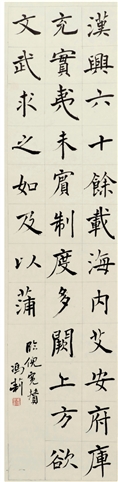 漢興六十餘載海內艾安府庫
充實夷未賓制度多闕上方欲
文武求之如及以蒲
臨倪寬贊